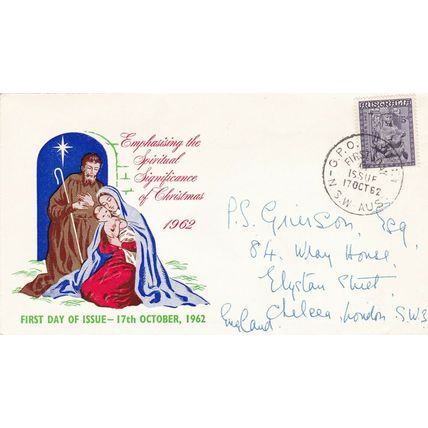 Emphasising the
Spiritual
Significance
of Christmas
1962
AUSTRALIA
G.P.O.
FIRST DAY
ISSUE
17 OCT 62
N.S.W-AUST
P.S. Grierson, Esq
84. Wray House,
Elystan Street,
Chelsea, London. S.W.3
England.
FIRST DAY OF ISSUE— 17th OCTOBER, 1962